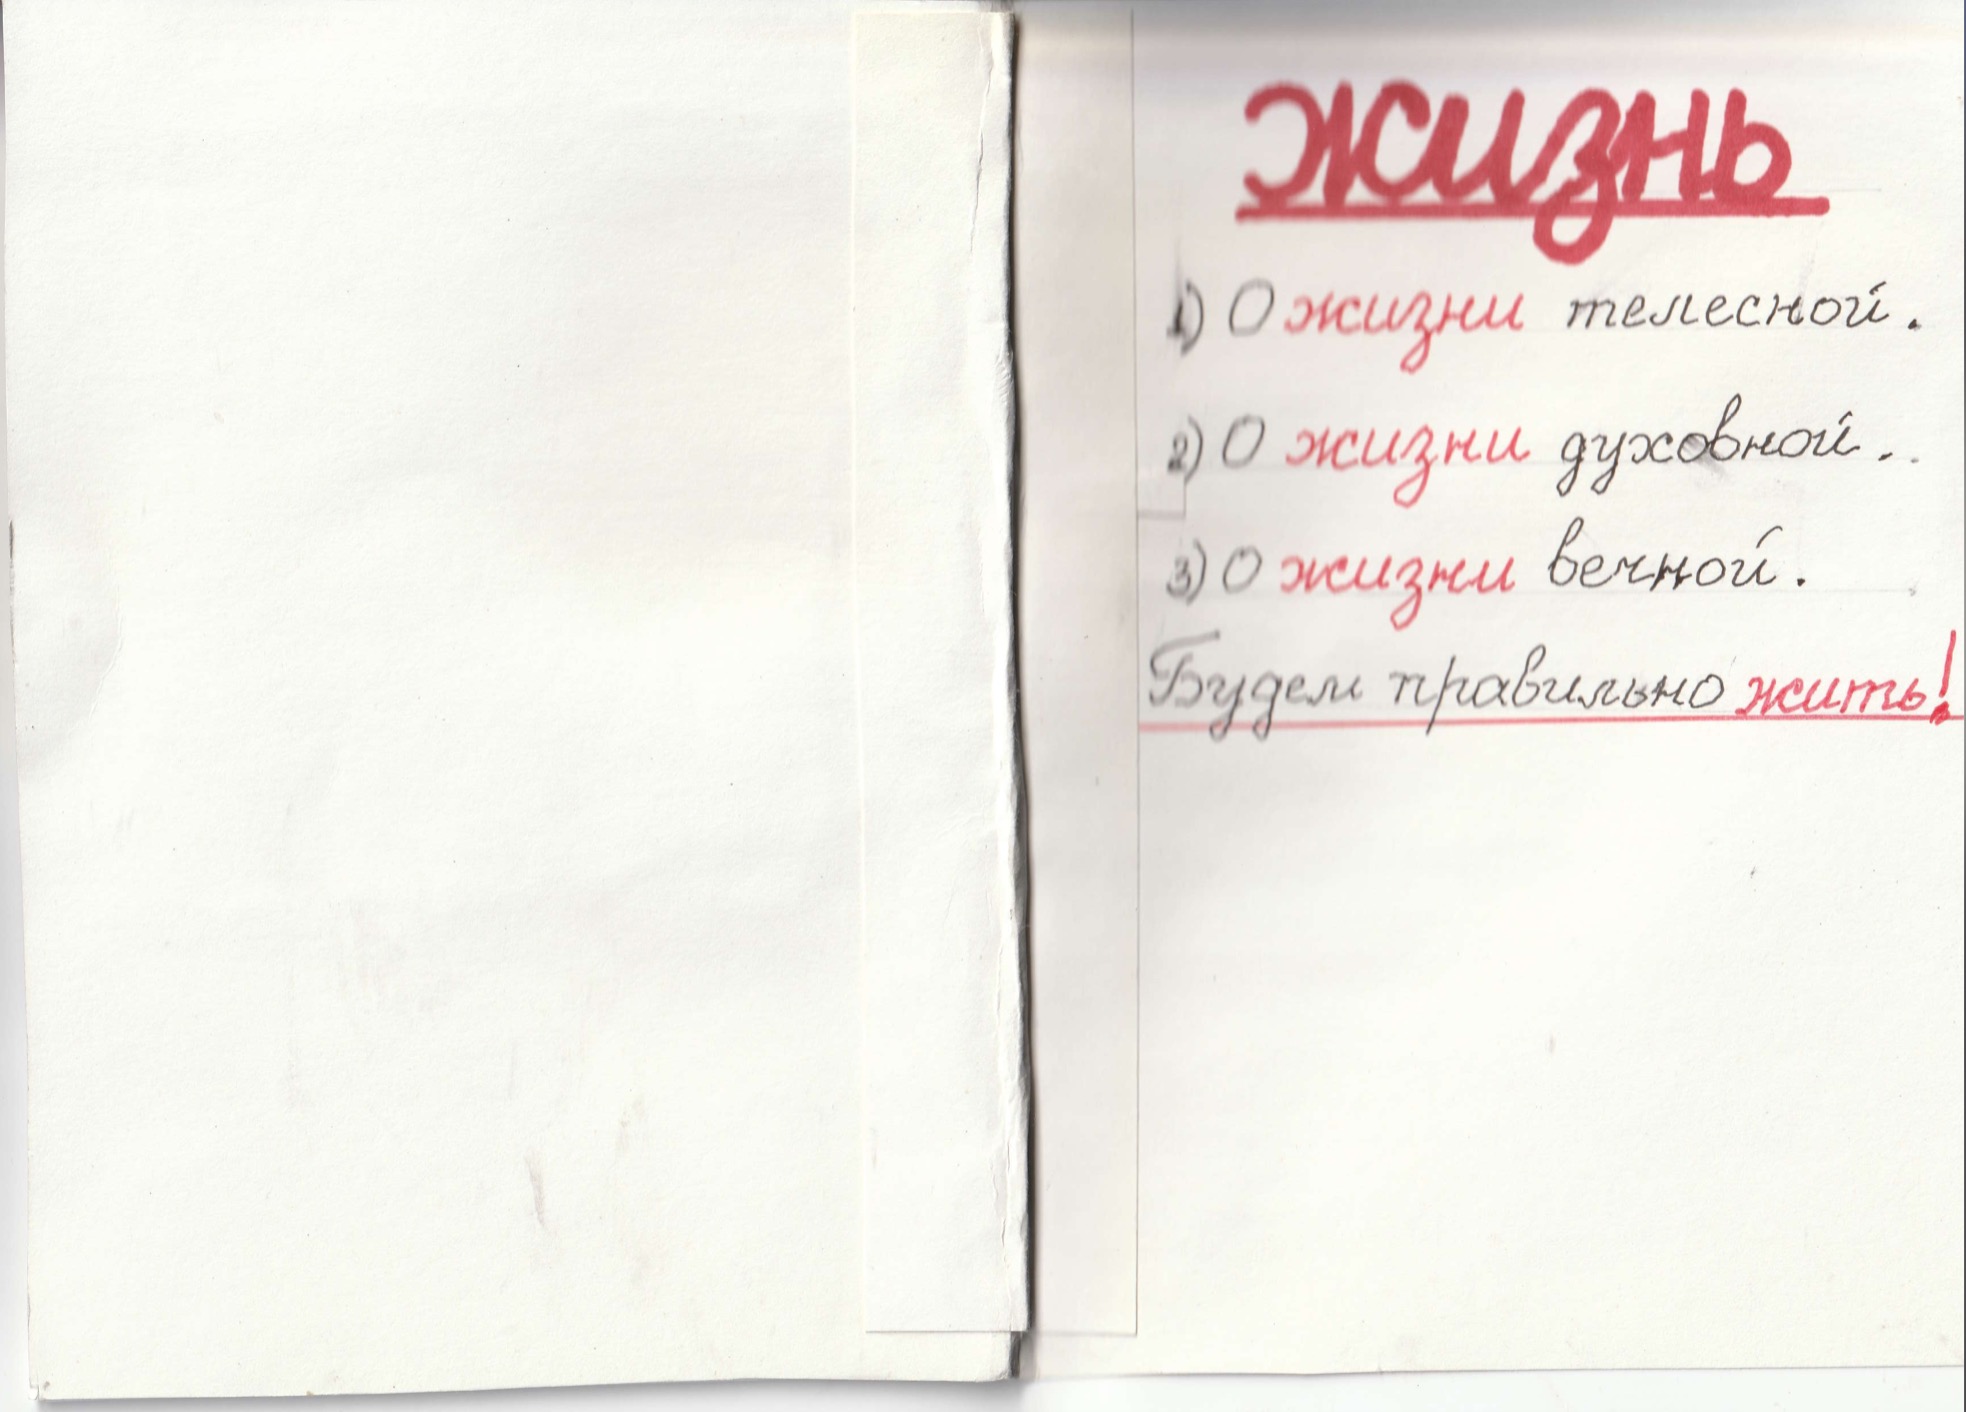 жизнь
1) О жизни телесной.
2) О жизни духовной..
3) О жизни вечной.
Будем правильно жить!